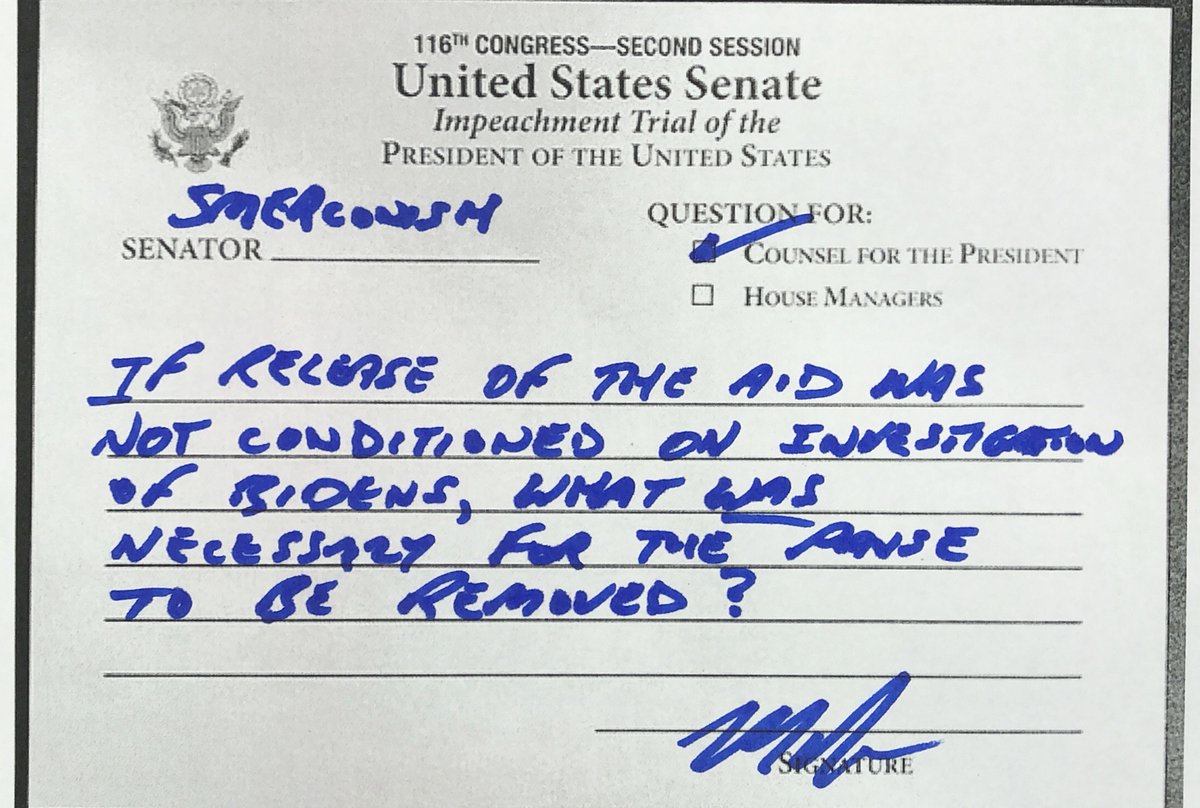 116TH CONGRESS—SECOND SESSION
United States Senate
Impeachment Trial of the
PRESIDENT OF THE UNITED STATES
SMERCONISH
SENATOR
QUESTION FOR:
COUNSEL FOR THE PRESIDENT
HOUSE MANAGERS
IF RELEASE OF THE AID WAS
NOT CONDITIONED ON INVESTIGATION
OF BIDENS, WHAT WAS
NECESSARY FOR THE PAUSE
TO BE REMOVED?
SIGNATURE